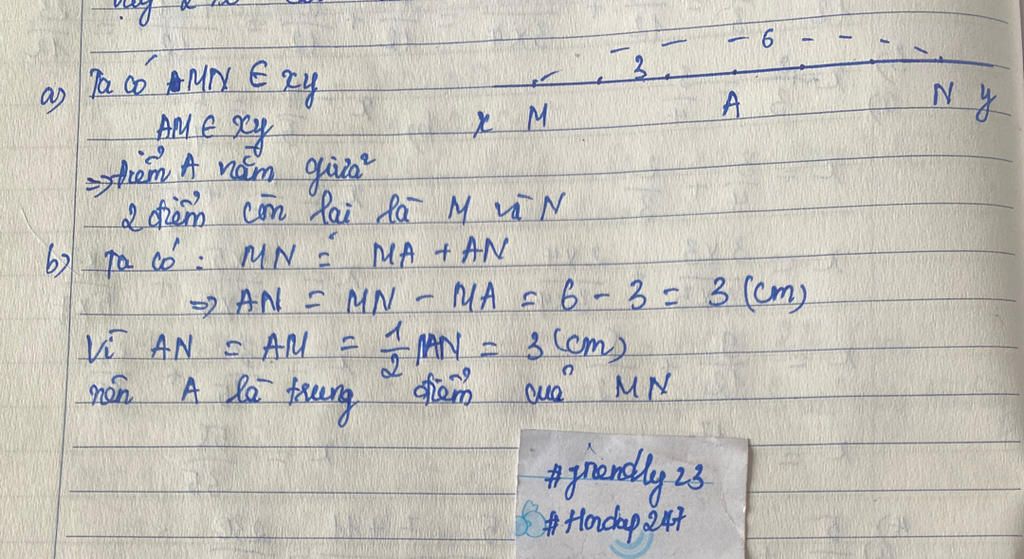 a) Ta có MN ∈ xy
AM ∈ xy
⇒ điểm A nằm giữa
2 điểm còn lại là M và N
3
6
x M A N y
b) Ta có : MN = MA + AN
⇒ AN = MN - MA = 6 - 3 = 3 (cm)
Vì AN = AM = 1/2 MN = 3 (cm)
nên A là trung điểm của MN
#friendly23
#Hoidap247